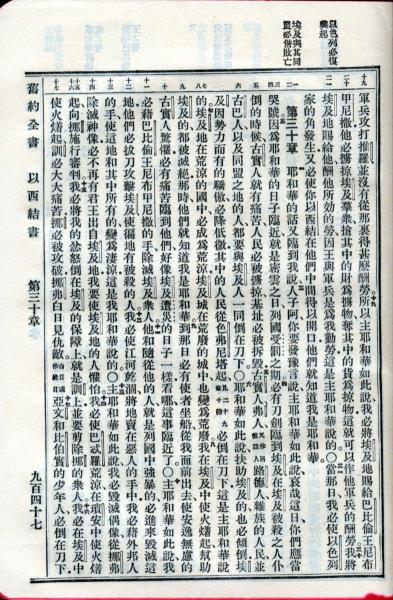 以色列必復
興起
埃及與其同
盟必偕敗亡
軍兵攻打推羅並沒有從那裏得甚麼酬勞所以主耶和華如此說我必將埃及地賜給巴比倫王尼布
甲尼撒他必擄掠埃及羣衆搶其中的財為擄物奪其中的貨為掠物這就可以作他軍兵的酬勞我將
埃及地賜給他酬他所效的勞因王與軍兵是為我勤勞這是主耶和華說的○當那日我必使以色列
家的角發生又必使你以西結在他們中間得以開口他們就知道我是耶和華
第三十章 耶和華的話又臨到我說人子阿你要發豫言說主耶和華如此說哀哉這日你們應當
哭號因為耶和華的日子臨近就是密雲之日列國受罰之期必有刀劍臨到埃及在埃及被殺之人仆
倒的時候古實人就有痛苦人民必被擄掠基址必被拆毀古實人弗人又作呂彼人路德人雜族的人民並
古巴人以及同盟之地的人都要與埃及人一同倒在刀下○耶和華如此說扶助埃及的也必傾倒埃
及因勢力而有的驕傲必降低微其中的人民從色弗尼塔起見二十九章十節必倒在刀下這是主耶和華說
的埃及地在荒涼的國中必成為荒涼埃及城在荒廢的城中也變為荒廢我在埃及中使火燒起幫助
埃及的都被滅絕那時他們就知道我是耶和華到那日必有使者坐船從我面前出去使安逸無慮的
古實人驚懼必有痛苦臨到他們好像埃及遭災的日子一樣看哪這事臨近了○主耶和華如此說我
必藉巴比倫王尼布甲尼撒的手除滅埃及衆人他和隨從他的人就是列國中強暴的必進來毀滅這
地他們必拔刀攻擊埃及使遍地有被殺的人我必使江河乾涸將地賣在惡人的手中我必藉外邦人
的手使這地和其中所有的變為淒涼這是我耶和華說的○主耶和華如此說我必毀滅偶像從挪弗
除滅神像必不再有君王出自埃及地我要使埃及地的人懼怕我必使巴忒羅荒涼在瑣安中使火燒
起向挪施行審判我必將我的忿怒倒在埃及的保障上就是訓上並要剪除挪的衆人我必在埃及中
使火燒起訓必大大痛苦挪必被攻破挪弗白日見仇敵白日或作終日亞文和比伯實的少年人必倒在刀下
舊約全書 以西結書 第三十章 九百四十七